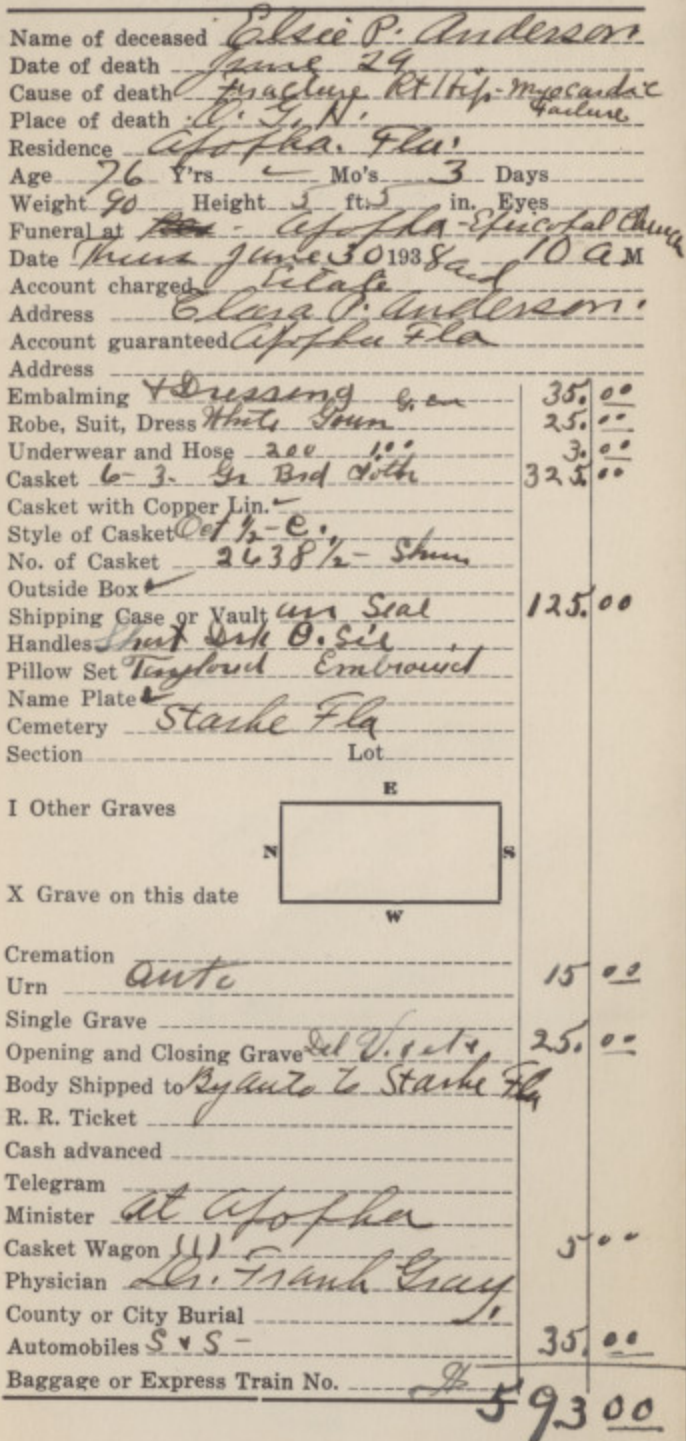 Name of deceased Elsie P. Anderson.
Date of death June 29
Cause of death Fracture Rt Hip - Myocardic Failure
Place of death O. G. H.
Residence Apopka. Fla.
Age 76 Y'rs Mo's 3 Days
Weight 90 Height 5 ft. 5 in. Eyes
Funeral at - Apopka - Episcopal Church
Date Thurs June 30 1938 10 A M
Account charged Estate
Address Clara P. Anderson.
Account guaranteed Apopka Fla
Address
Embalming & Dressing 35.00
Robe, Suit, Dress White Gown 25.00
Underwear and Hose 200 100 3.00
Casket 6-3- Gr Brd Cloth 325.00
Casket with Copper Lin.
Style of Casket Oct ½-C.
No. of Casket 2638½-
Outside Box
Shipping Case or Vault Seal 125.00
Handles Short
Pillow Set Embrouid
Name Plate
Cemetery Starke Fla
Section Lot
E
I Other Graves
N S
X Grave on this date
W
Cremation
Urn auto 15 00
Single Grave
Opening and Closing Grave Del 25.00
Body Shipped to By auto to Starke Fla
R. R. Ticket
Cash advanced
Telegram
Minister at Apopka
Casket Wagon (1) 5 00
Physician Dr. Frank Gray.
County or City Burial
Automobiles S & S - 35.00
Baggage or Express Train No. $ 593 00